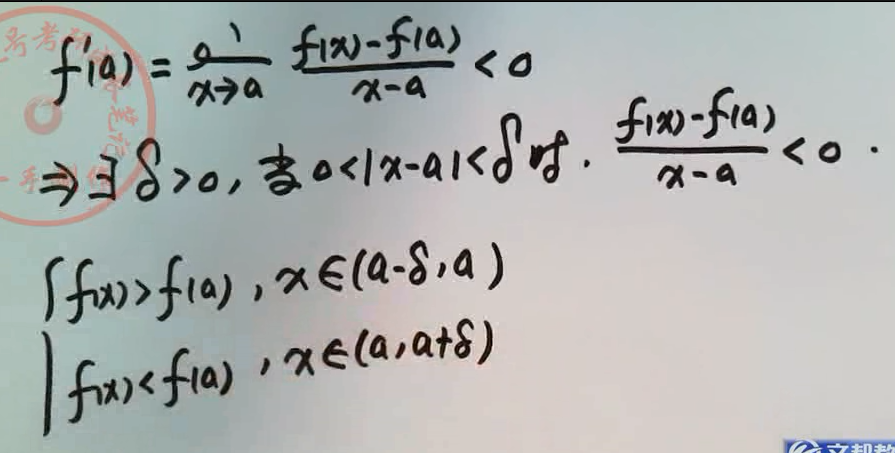 f'(a) = lim x→a (f(x)-f(a))/(x-a) < 0
⇒ ∃ δ>0, 当 0<|x-a|<δ时. (f(x)-f(a))/(x-a) < 0 .
{ f(x)>f(a), x∈(a-δ,a)
f(x)<f(a), x∈(a,a+δ)
文都教